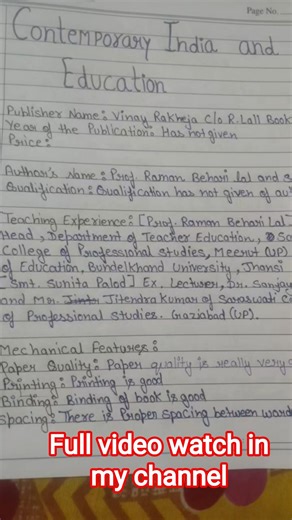 Page No.
Contemporary India and
Education
Publisher Name: Vinay Rakheja c/o R.Lall Book
Year of the Publication: Has not given
Price:
Author's Name: Prof. Raman Behari lal and S
Qualification: Qualification has not given of au
Teaching Experience: [Prof. Raman Behari Lal]
Head, Department of Teacher Education,
College of Professional Studies, Meerut (UP)
of Education, Bundelkhand University, Jhansi
[Smt. Sunita Palod] Ex. Lecturer, Dr. Sanjay
and Mr. Jitendra Kumar of Saraswati
of Professional Studies. Gaziabad (UP).
Mechanical Features:
Paper Quality: Paper quality is really very
Printing: Printing is good
Binding: Binding of book is good
Spacing: There is Proper spacing between word
Full video watch in
my channel